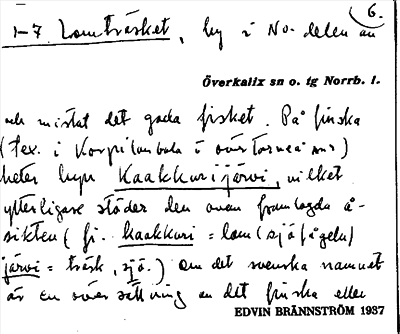 6.
1-7 Lomträsket, by i No. delen av
Överkalix sn o. tg Norrb. l.
och mistat det goda fisket. På finska
(t.ex. i Korpilombolo i övertorneå sn)
heter byn Kaakkurijärvi, vilket
ytterligare stöder den ovan framlagda å-
sikten (fi. kaakkuri = lom (sjöfågeln)
järvi = träsk, sjö.) Om det svenska namnet
är en översättning av det finska eller
EDVIN BRÄNNSTRÖM 1937